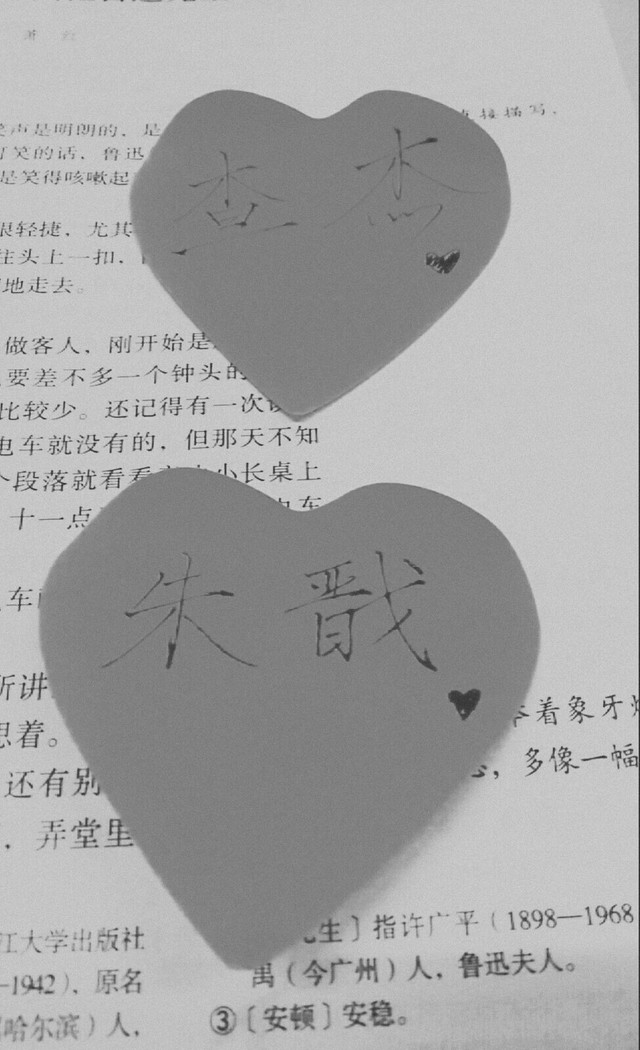 笑声是明朗的，是
直接描写，
可笑的话，鲁迅
是笑得咳嗽起
很轻捷，尤其
往头上一扣，
地走去。
做客人，刚开始是
要差不多一个钟头的
比较少。还记得有一次
电车就没有的，但那天不知
个段落就看看 小长桌上
十一点 电车
车
所讲
思着。
还有别
，弄堂里
查杰
朱戬
着象牙
，多像一幅
江大学出版社
—1942），原名
哈尔滨）人，
生］指许广平（1898—1968
禺（今广州）人，鲁迅夫人。
③［安顿］安稳。